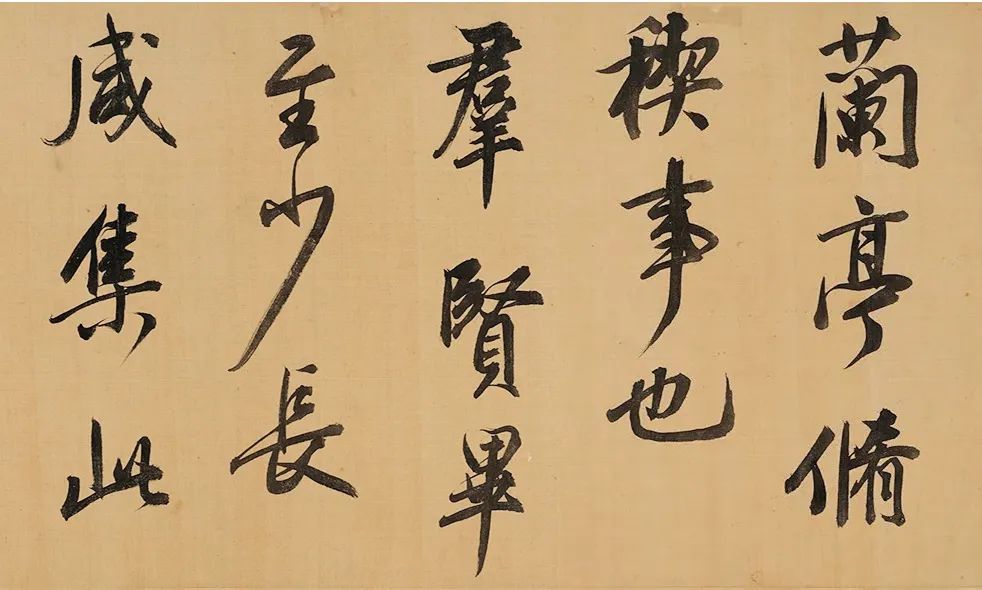 蘭亭脩
稧事也
羣賢畢
至少長
咸集此